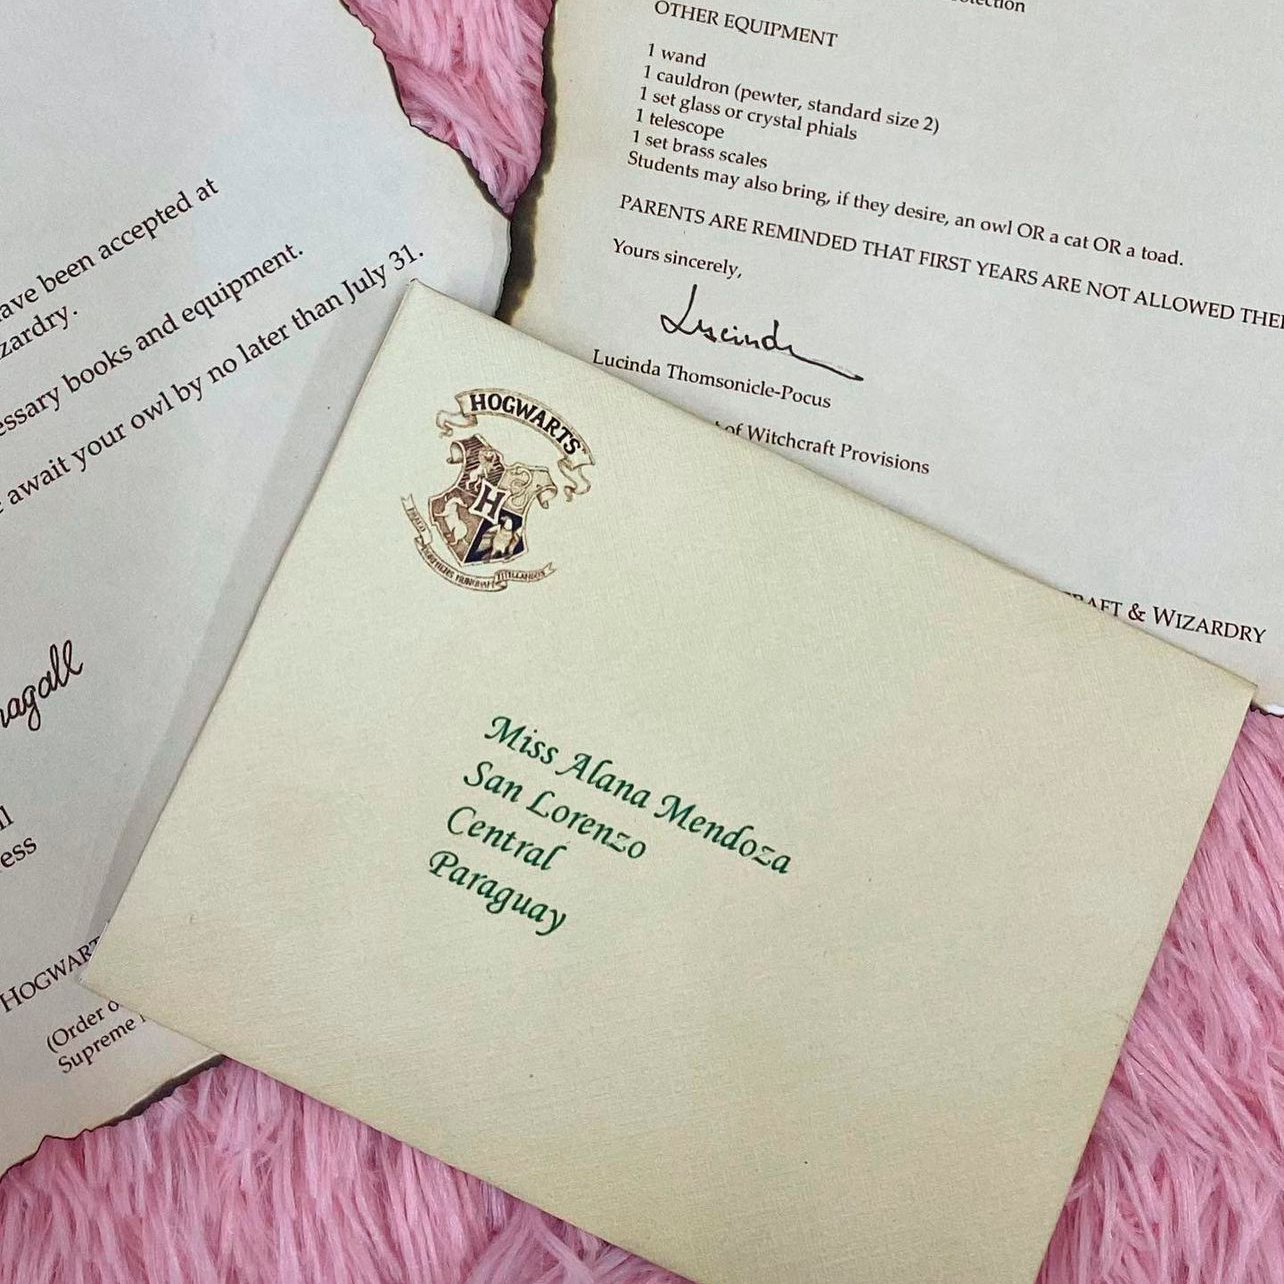 ave been accepted at
zardry.
essary books and equipment.
await your owl by no later than July 31.
nagall
ess
HOGWART
(Order o
Supreme
OTHER EQUIPMENT
1 wand
1 cauldron (pewter, standard size 2)
1 set glass or crystal phials
1 telescope
1 set brass scales
Students may also bring, if they desire, an owl OR a cat OR a toad.
PARENTS ARE REMINDED THAT FIRST YEARS ARE NOT ALLOWED THEI
Yours sincerely,
Lucinda
Lucinda Thomsonicle-Pocus
of Witchcraft Provisions
RAFT & WIZARDRY
HOGWARTS
H
Miss Alana Mendoza
San Lorenzo
Central
Paraguay